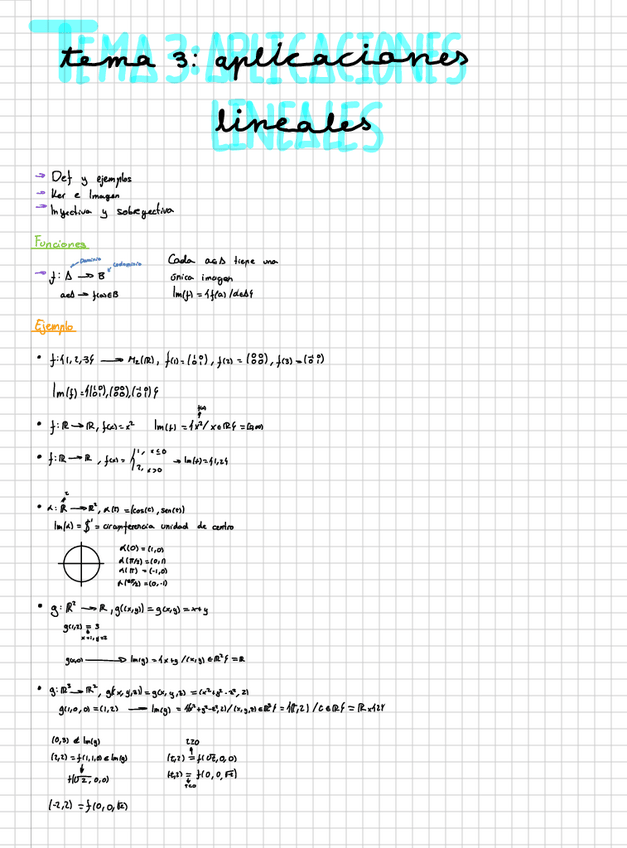 TEMA 3: APLICACIONES
tema 3: aplicaciones
LINEALES
lineales
→ Def y ejemplos
→ Ker e Imagen
→ Inyectiva y sobreyectiva
Funciones
Dominio
Codominio
→ f: A → B
a∈A → f(a)∈B
Cada a∈A tiene una
única imagen
Im(f) = {f(a) / a∈A}
Ejemplo
• f: {1, 2, 3} → M₂(ℝ), f(1) = (1 0 / 0 1), f(2) = (0 0 / 0 0), f(3) = (-1 0 / 0 1)
Im(f) = {(1 0 / 0 1), (0 0 / 0 0), (-1 0 / 0 1)}
f(x)
• f: ℝ → ℝ, f(x) = x² Im(f) = {x² / x∈ℝ} = [0,∞)
• f: ℝ → ℝ, f(x) = { 1, x≤0
2, x>0
→ Im(f) = {1,2}
• α: ℝ → ℝ², α(t) = (cos(t), sen(t))
Im(α) = $¹ = circunferencia unidad de centro
α(0) = (1,0)
α(π/2) = (0,1)
α(π) = (-1,0)
α(3π/2) = (0,-1)
• g: ℝ² → ℝ, g((x,y)) = g(x,y) = x+y
g(1,2) = 3
x=1, y=2
Im(g) = {x+y / (x,y) ∈ ℝ²} = ℝ
• g: ℝ³ → ℝ², g(x,y,z) = g(x,y,z) = (x²+y²-z², 2)
g(1,0,0) = (1,2) → Im(g) = {(x²+y²-z², 2) / (x,y,z) ∈ ℝ³} = {(t,2) / t∈ℝ} = ℝ×{2}
(0,3) ∉ Im(g)
(2,2) = f(1,1,0) ∈ Im(g)
f(√2, 0, 0)
t≥0
(t,2) = f(√t, 0, 0)
(t,2) = f(0, 0, √-t)
t<0
(-2,2) = f(0, 0, √2)